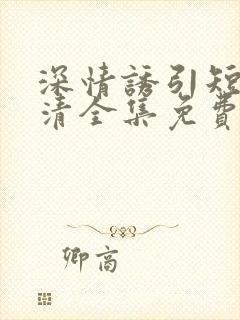 深情誘引短
清全集免費
卿高